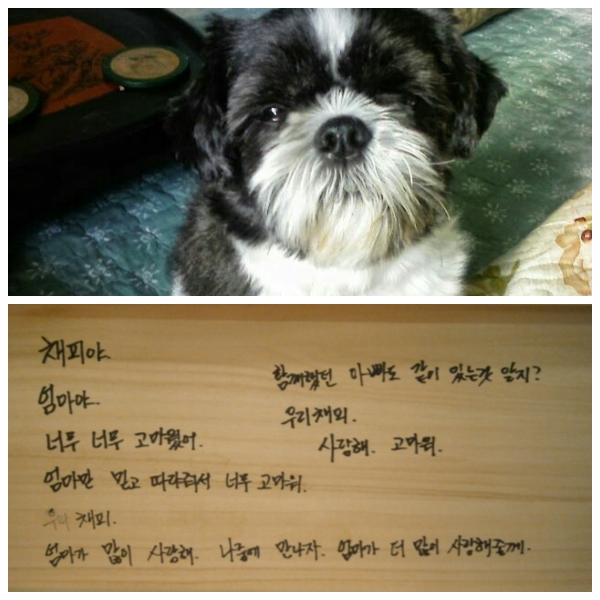 채피야.
엄마야.
너무 너무 고마웠어.
엄마만 믿고 따라줘서 너무 고마워.
우리 채피.
엄마가 많이 사랑해. 나중에 만나자. 엄마가 더 많이 사랑해줄께.
함께했던 아빠도 같이 있는것 알지?
우리채피.
사랑해. 고마워.